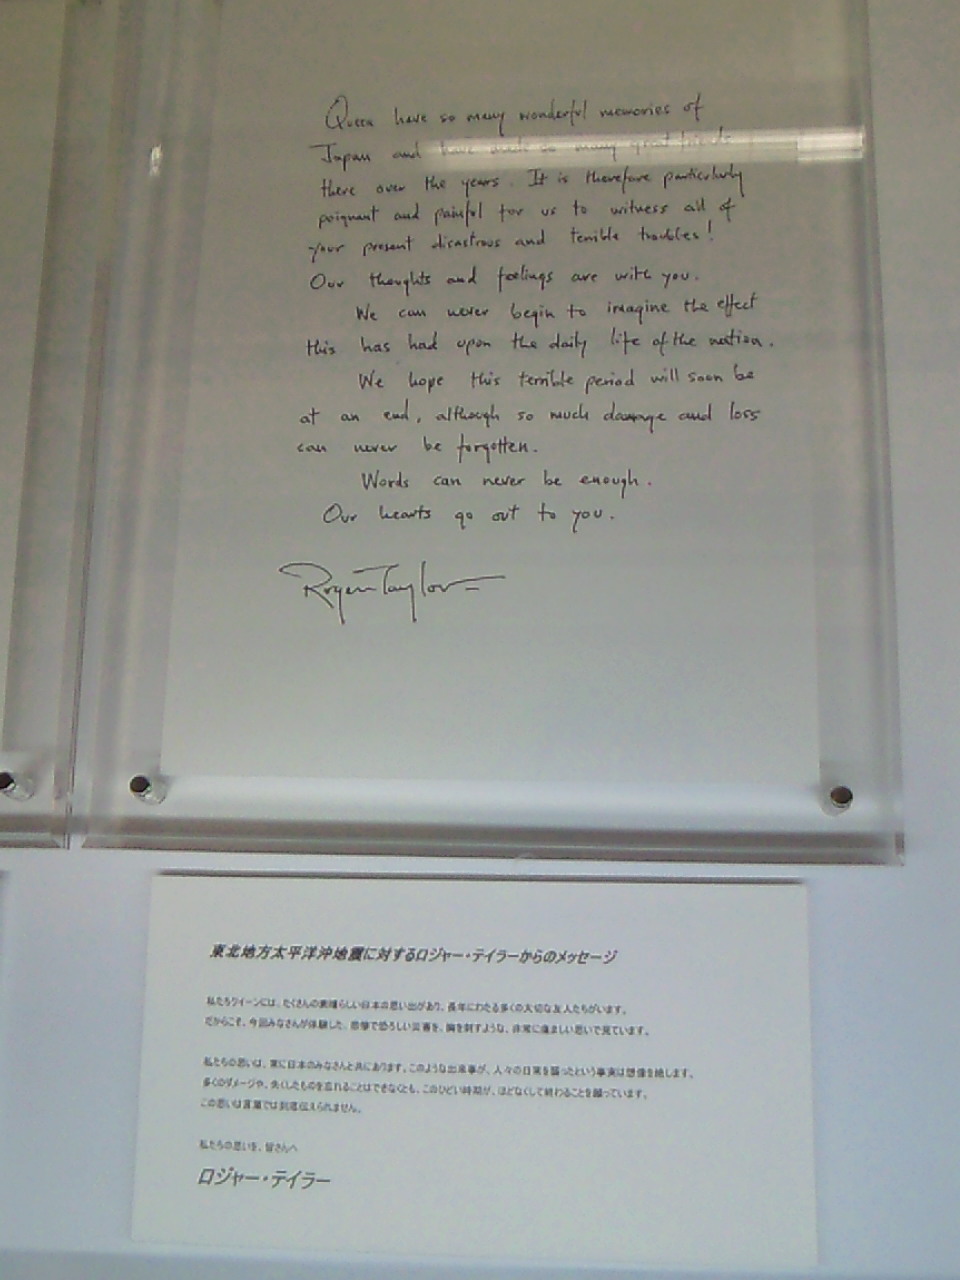 Queen have so many wonderful memories of
Japan and have made so many great friends
there over the years. It is therefore particularly
poignant and painful for us to witness all of
your present disastrous and terrible troubles!
Our thoughts and feelings are with you.
We can never begin to imagine the effect
this has had upon the daily life of the nation.
We hope this terrible period will soon be
at an end, although so much damage and loss
can never be forgotten.
Words can never be enough.
Our hearts go out to you.
Roger Taylor
東北地方太平洋沖地震に対するロジャー・テイラーからのメッセージ
私たちクイーンには、たくさんの素晴らしい日本の思い出があり、長年にわたる多くの大切な友人たちがいます。
だからこそ、今回みなさんが体験した、悲惨で恐ろしい災害を、胸を刺すような、非常に痛ましい思いで見ています。
私たちの思いは、常に日本のみなさんと共にあります。このような出来事が、人々の日常を襲ったという事実は想像を絶します。
多くのダメージや、失くしたものを忘れることはできなくとも、このひどい時期が、ほどなくして終わることを願っています。
この思いは言葉では到底伝えられません。
私たちの思いを、皆さんへ
ロジャー・テイラー